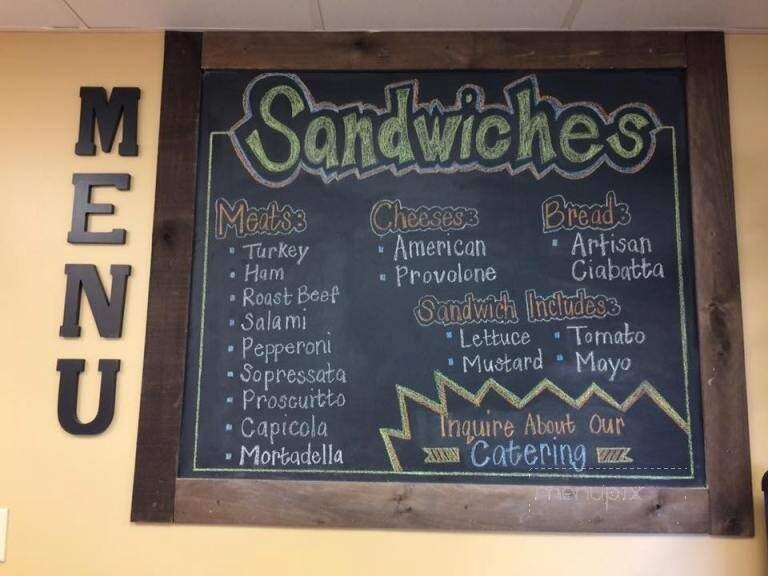 MENU
Sandwiches
Meats:
• Turkey
• Ham
• Roast Beef
• Salami
• Pepperoni
• Sopressata
• Proscuitto
• Capicola
• Mortadella
Cheeses:
• American
• Provolone
Bread:
• Artisan
Ciabatta
Sandwich Includes:
• Lettuce • Tomato
• Mustard • Mayo
Inquire About Our
Catering
menupix